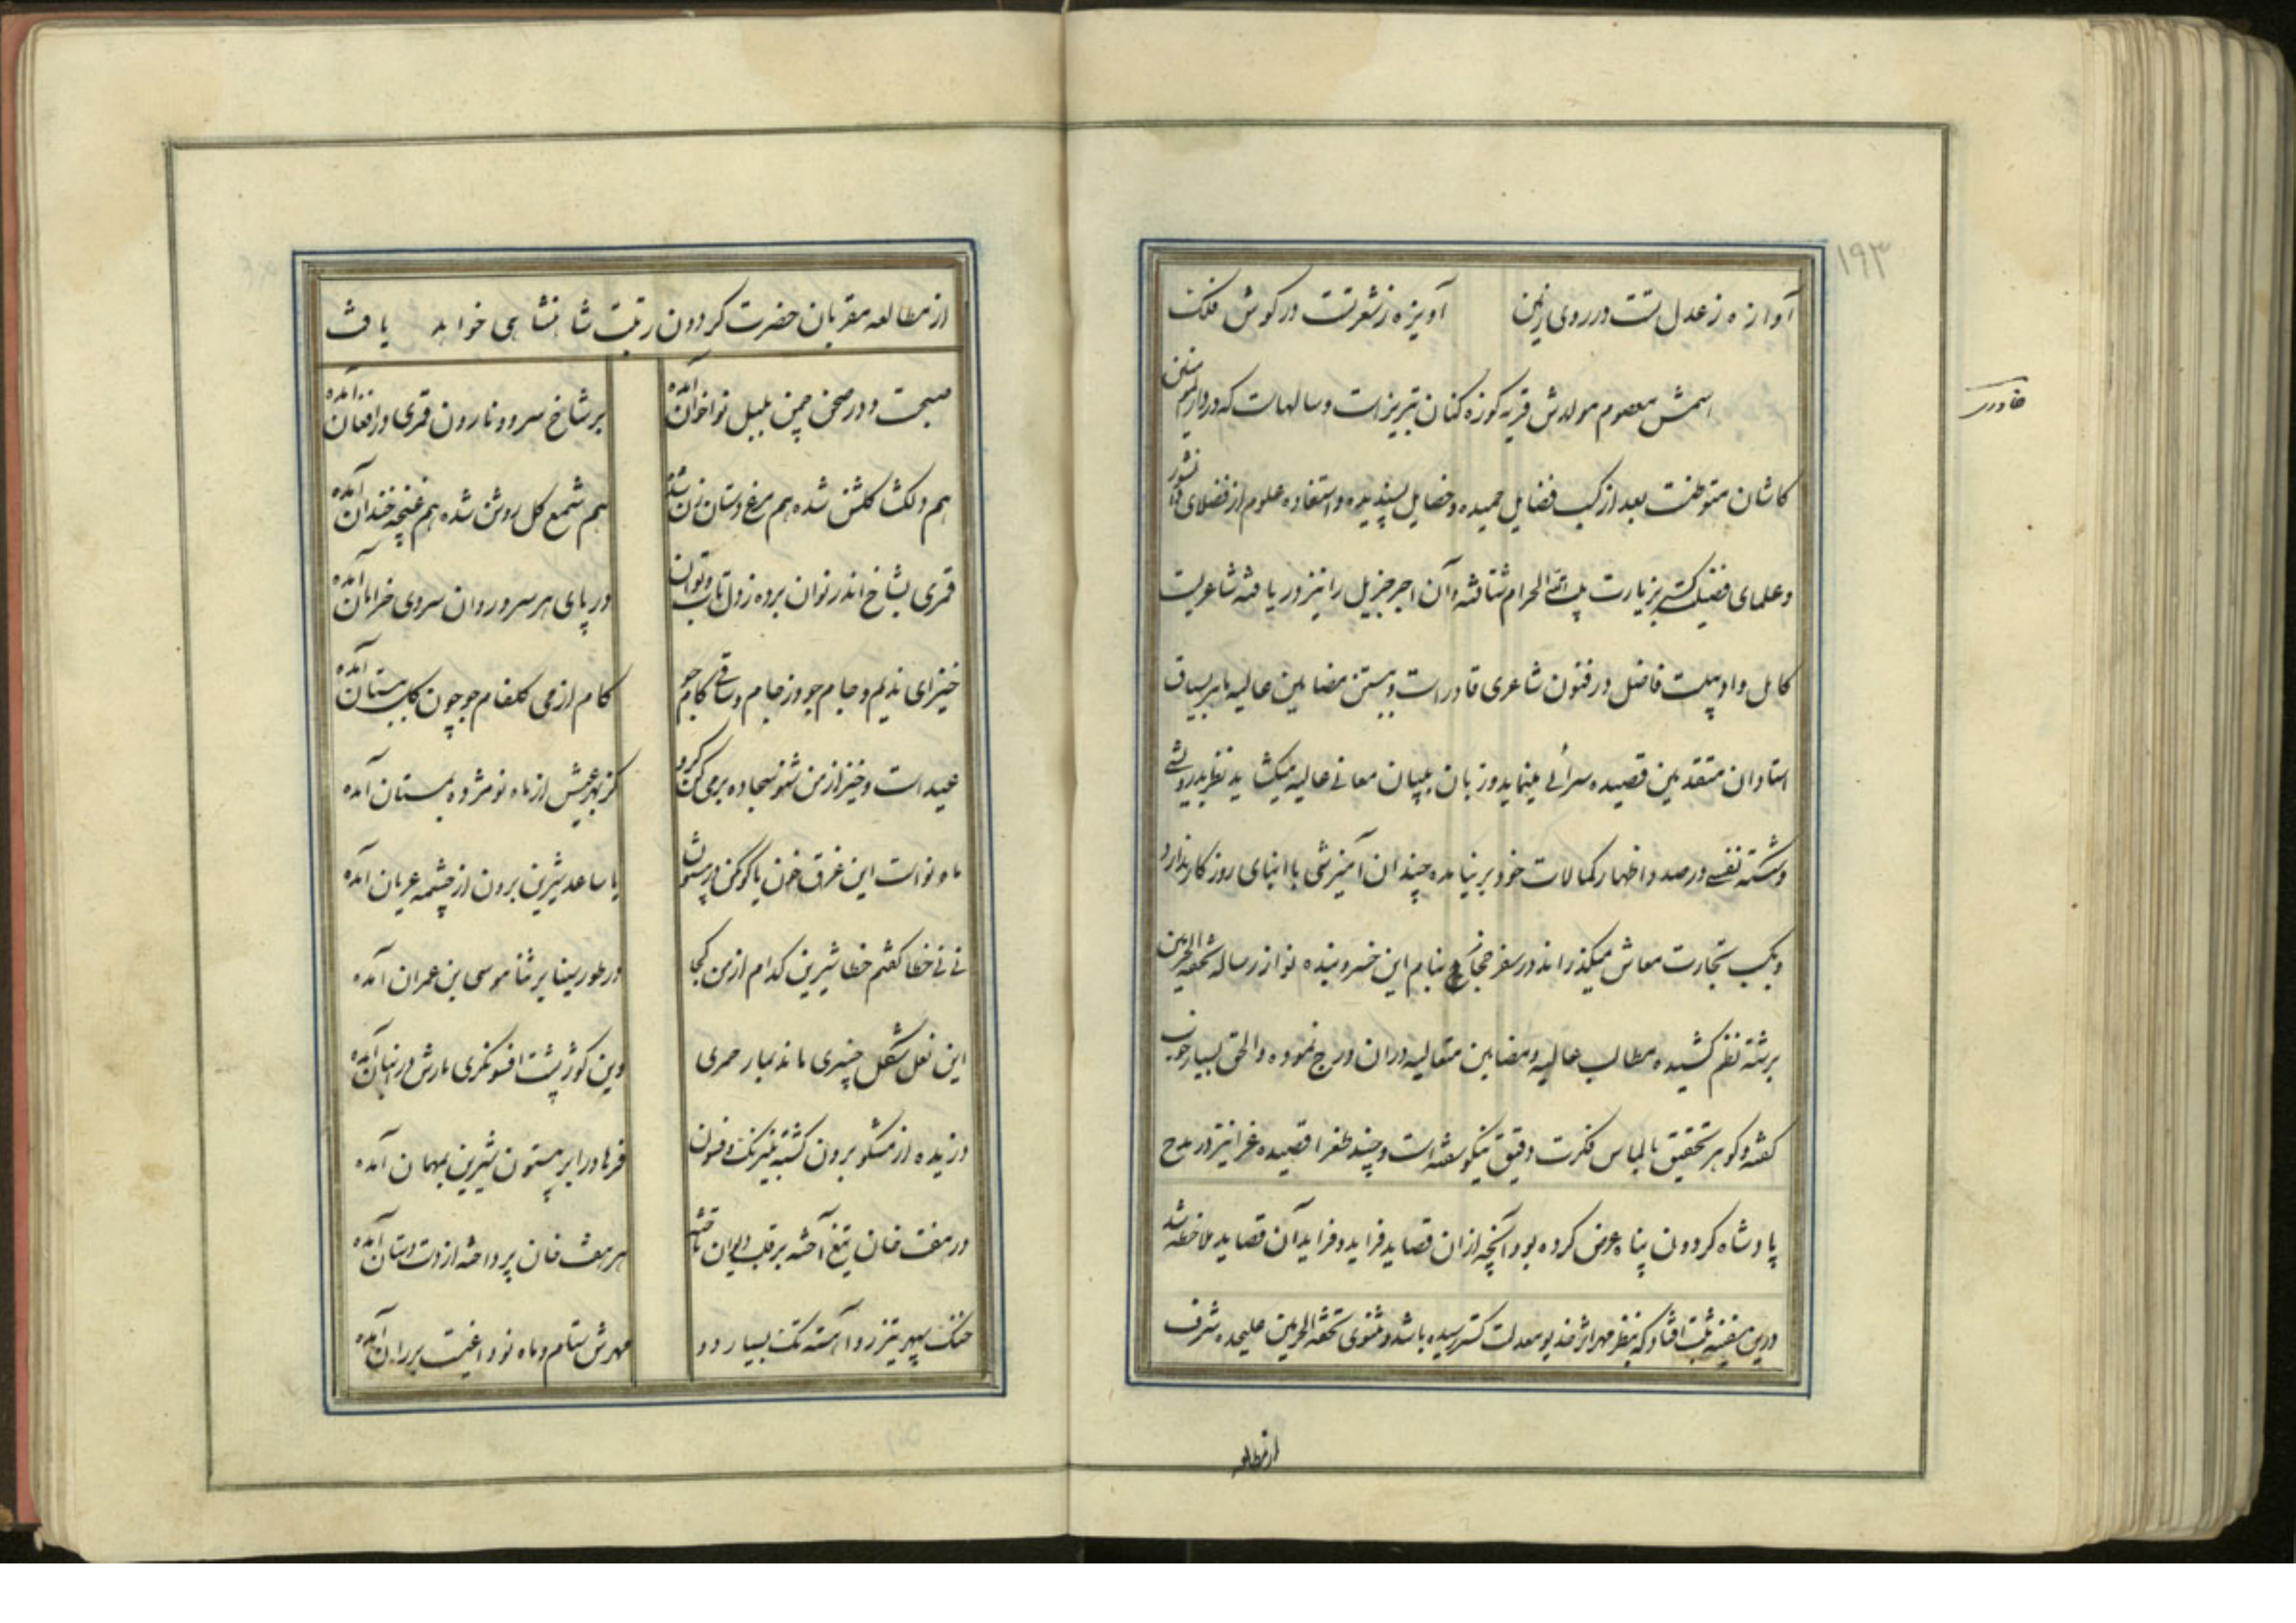 ۱۹۳
آوازه ز عدل تست در روی زمین آویزه ز شعر تست در گوش فلک
خاوری
اسمش معصوم مولدش قریه کوزه کنان تبریز است و سالهاست که در دارالمؤمنین
کاشان متوطنست بعد از کسب فضایل حمیده و خصایل پسندیده و استفاده علوم از فضلای
و علمای فضیلت گستر بزیارت بیت الله الحرام شتافته و آن اجر جزیل را نیز دریافته شاعریست
کامل و ادیبیست فاضل در فنون شاعری قادر است و ببستن مضامین عالیه ماهر بسیاق
استادان متقدمین قصیده سرائی مینماید و زبان ببیان معانی عالیه میگشاید نظر بدرویشی
و شکسته نفسی در صدد اظهار کمالات خود برنیامده چندان آمیزشی با ابنای روزگار ندارد
و بکسب تجارت معاش میگذراند در سفر حجاز بنام این خسرو بنده نواز رساله تحفة الحرمین
برشته نظم کشیده مطالب عالیه و مضامین متعالیه در آن درج نموده و الحق بسیار خوب
گفته و گوهر تحقیق بالماس فکرت دقیق نیکو سفته است و چند طغرا قصیده غرا نیز در مدح
پادشاه گردون پناه عرض کرده بود آنچه از آن قصاید فراید و فراید آن قصاید ملاحظه شد
درین سفینه ثبت افتاد که بنظر مهر اثر خدیو معدلت گستر رسیده باشد و مثنوی تحفة الحرمین علیحده شرف
از مطالعه
از مطالعه مقربان حضرت گردون رتبت شاهنشاهی خواهد یافت
صبحست و در صحن چمن بلبل نواخوان آمده بر شاخ سرو و نارون قمری در افغان آمده
هم دلگشا گلشن شده هم مرغ دستان زن شده هم شمع گل روشن شده هم غنچه خندان آمده
قمری بشاخ اندر نوان برده ز دل تاب و توان در پای هر سرو روان سروی خرامان آمده
خیز ای ندیم و جام جو وز جام و ساقی کام جو کام از می گلفام جو چون گل ببستان آمده
عید است و خیز از من شنو سجاده بر می کن گرو کز بهر عیش از ماه نو مژده بمستان آمده
ماه نو است این غرق خون یا کوهکن در بیستون یا ساعد شیرین برون از چشمه عریان آمده
نی نی خطا گفتم خطا شیرین کدام ازمن کجا در طور سینا بر ثنا موسی بن عمران آمده
این نعل شکل چنبری ماند بمار حمیری وین کوژ پشت افسونگری مارش در انبان آمده
دزدیده از مشکو برون گشته بنیرنگ و فسون فرهاد را بر بیستون شیرین بمهمان آمده
در هفت خان تیغ آخته بر قلب دیوان تاخته هر هفت خان پرداخته از دست دستان آمده
خنگ سپهر تیزرو آهسته تک بسیار دو مهرش ستام و ماه نو داغیست بر ران آمده